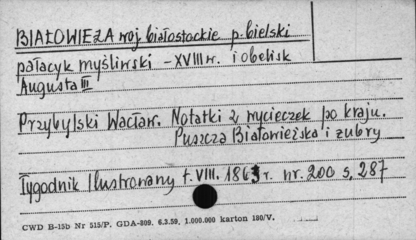 BIAŁOWIEŻA woj białostockie p. bielski
pałacyk myśliwski - XVIII w. i obelisk
Augusta III
Przybylski Wacław. Notatki z wycieczek po kraju.
Puszcza Białowieżska i zubry
Tygodnik Ilustrowany t. VIII. 1863 r. nr. 200 s. 287
CWD B-15b Nr 515/P. GDA-809. 6.3.59, 1.000.000 karton 180/V.